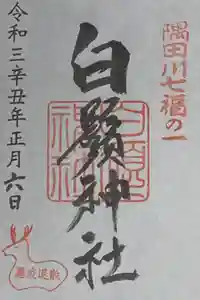 隅田川七福の一
白鬚神社
白鬚
神社
令和三辛丑年正月六日